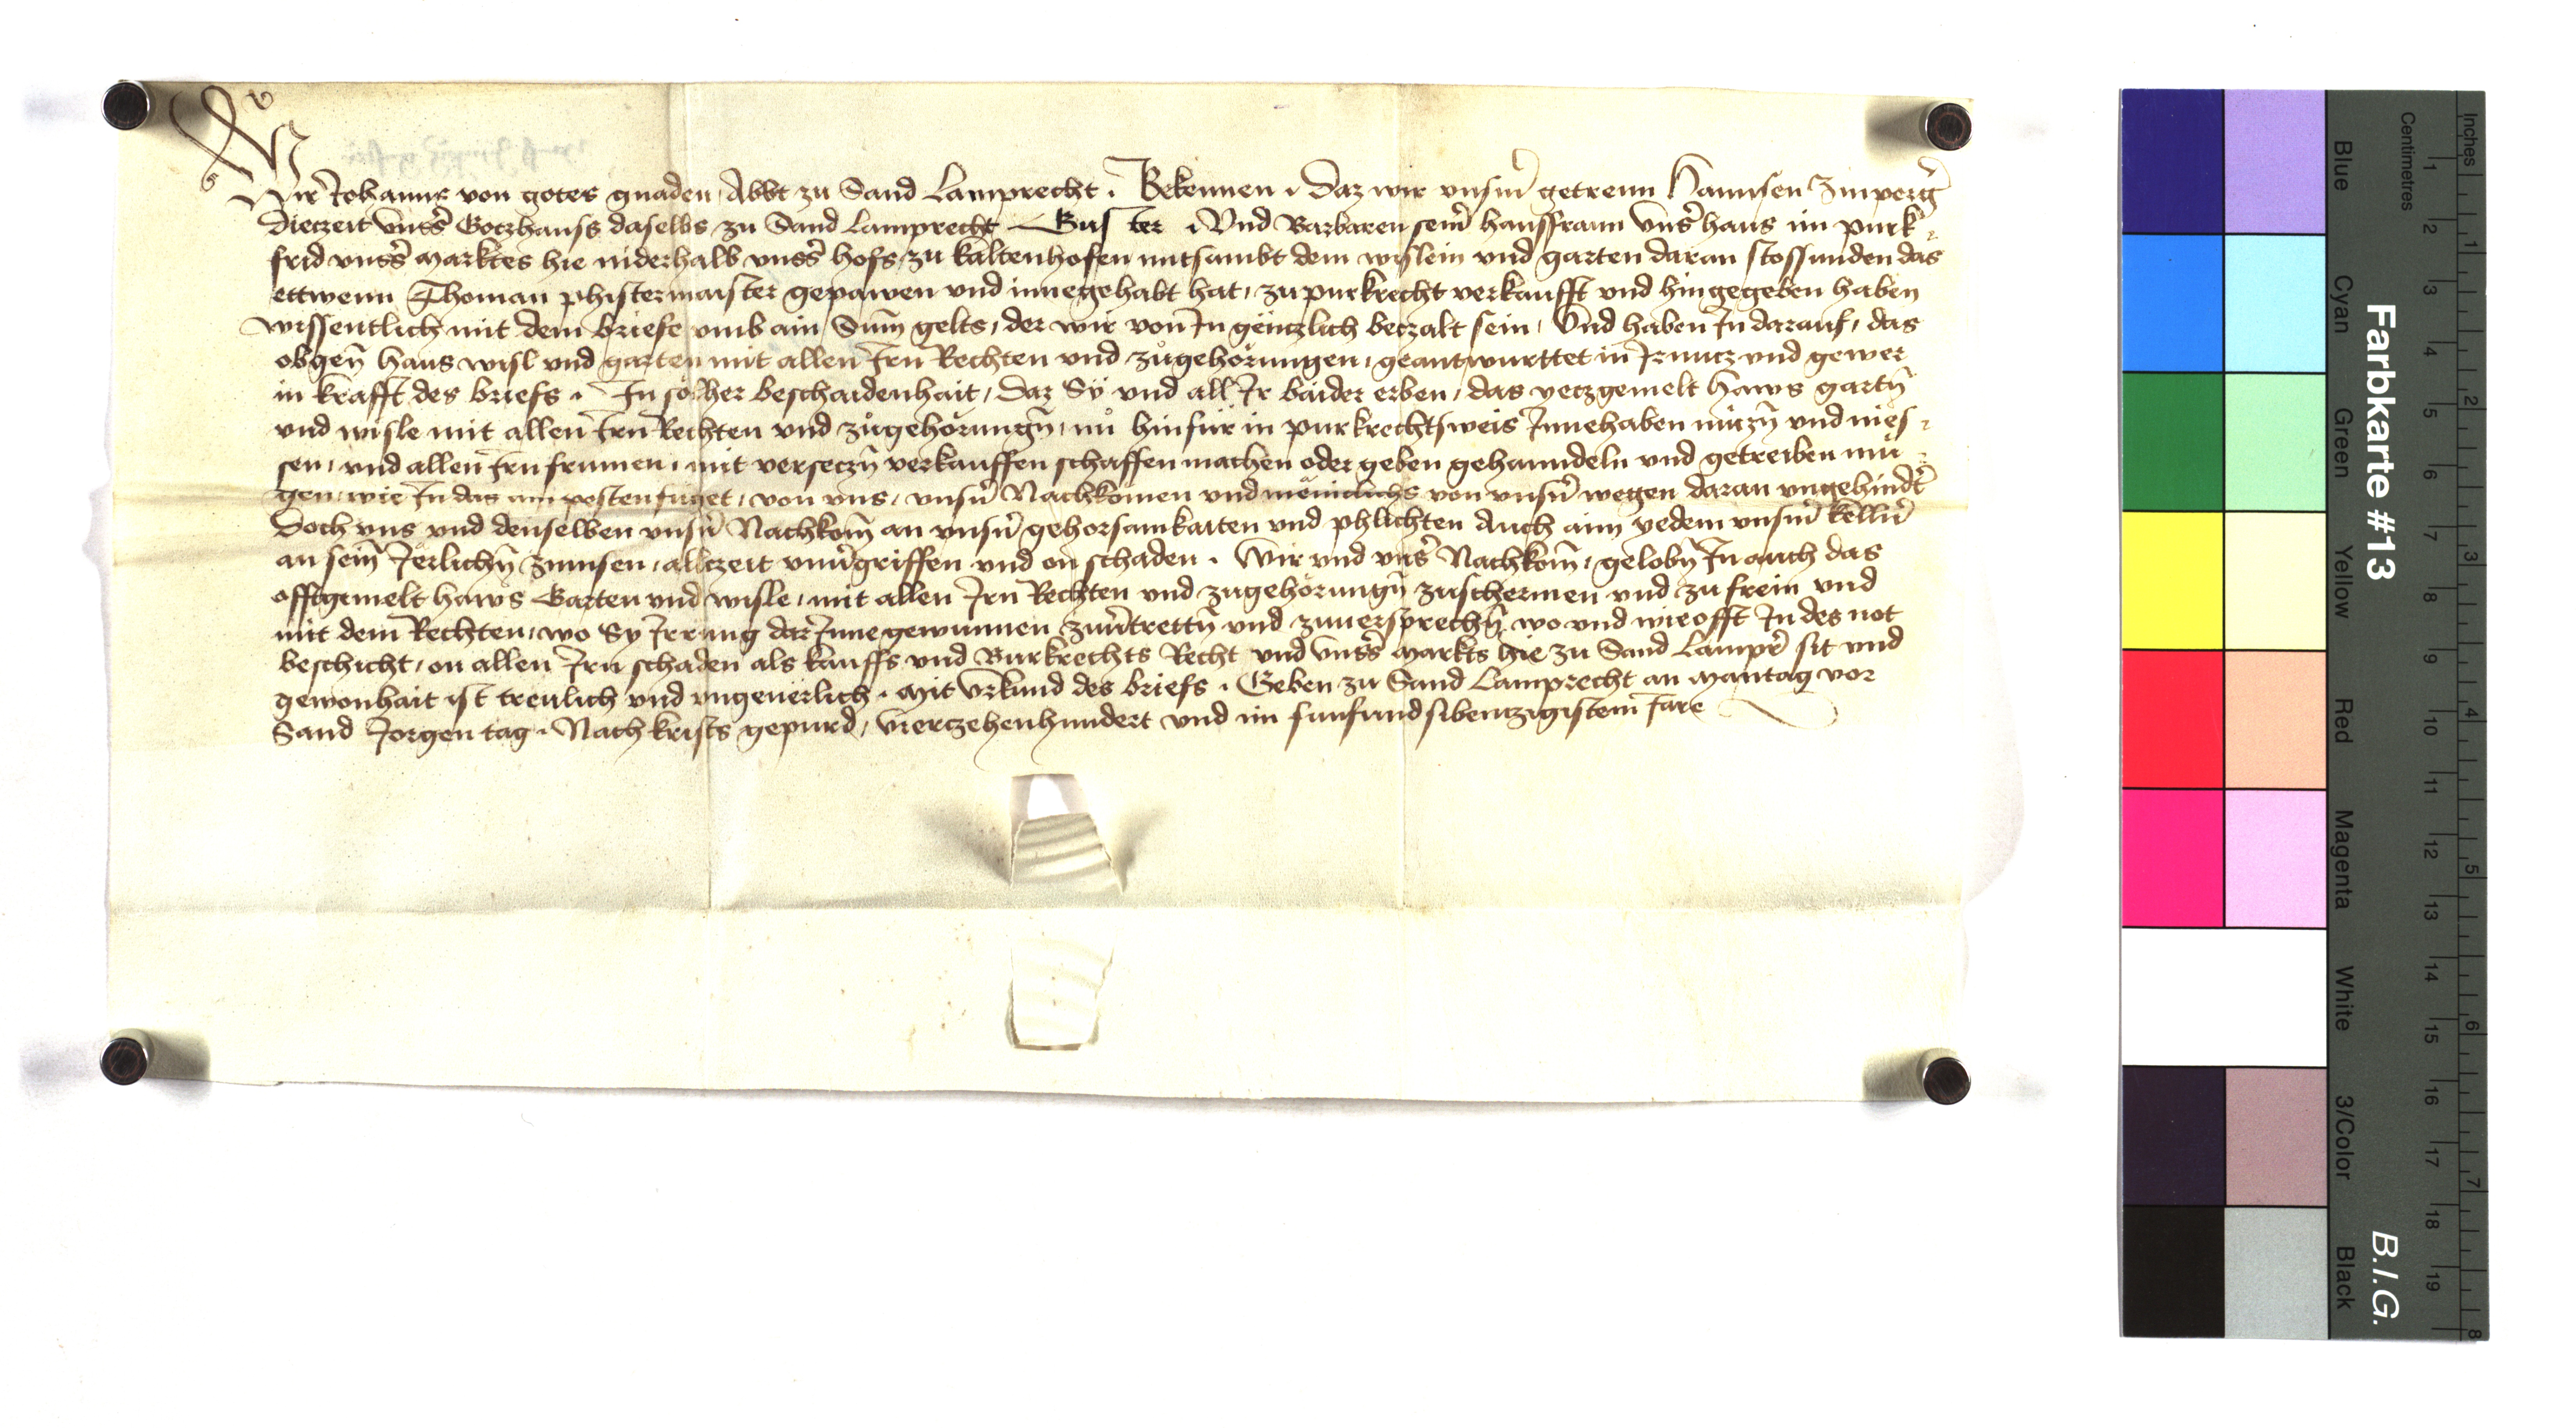 Wir Johanns von gotes gnaden Abbt zu Sand Lamprecht . Bekennen . Daz wir vnsm̄ getrewn Hannsen
Dieczeit vnss̄ Goczhauss daselbs zu Sand Lamprecht . Vnd Barbaren sein̄ hausfraun vnss̄ haus im purk
frid vnss̄ Marktes hie niderhalb vnss̄ hofs zu kaltenhofen mitsambt dem wislein vnd garten daran stossunden das
ettwenn Thoman phistermaister gepawen vnd innegehabt hat, zu purkrecht verkaufft vnd hingegeben haben
wissentlich mit dem briefe vmb ain Sum̄ gelts, der wir von In gënczlich beczalt sein, Vnd haben In darauf, das
obgen̄ haus wisl vnd garten mit allen Irn Rechten vnd zůgehörungen, geantwurttet in Ir nucz vnd gewer
in krafft des briefs . In solher beschaidenhait, daz Sy vnd all Ir baider erben, das yeczgemelt haws gartn̄
vnd wisle mit allen Irn Rechten vnd zůgehörungn̄, nu hinfür in purkrechtsweis Innehaben nuczn̄ vnd nies
sen, vnd allen Irn frumen, mit verseczn̄ verkauffen schaffen machen oder geben gehanndeln vnd getreiben mü
gen, wie In das am pesten füget, von vns, vnsn̄ Nachkomen vnd mëniclichs von vnsn̄ wegen daran vngehindt̄
Doch vns vnd denselben vnsn̄ Nachkom̄ an vnsn̄ gehorsamkaiten vnd phlichten Auch aim yedem vnsm̄ kelln̄
an sein̄ Jerlichn̄ zinnsen, allczeit vnu̅griffen vnd on schaden . Wir vnd vnss̄ Nachkom̄, gelobn̄ In auch das
offtgemelt haws Garten vnd wisle, mit allen Irn Rechten vnd zugehörungn̄ zuschermen vnd zu frein vnd
mit dem Rechten, wo Sy Irrung dar Inne gewunnen zuu̅trettn̄ vnd zuuersprechn̄, wo vnd wieofft In des not
beschicht, on allen Irn schaden als kauffs vnd Burkrechts Recht vnd vnss̄ Markts hie zu Sand Lampr̄ sit vnd
gewonhait ist treulich vnd vngeuërlich . Mit vrkund des briefs . Geben zu Sand Lamprecht an Mantag vor
Sand Jorgen tag . Nach krists gepurd, vierczehenhundert vnd im funfundsibenczigistem Jare
Farbkarte #13
B.I.G.
Blue Cyan Green Yellow Red Magenta White 3/Color Black
Centimetres 1 2 3 4 5 6 7 8 9 10 11 12 13 14 15 16 17 18 19
Inches 1 2 3 4 5 6 7 8